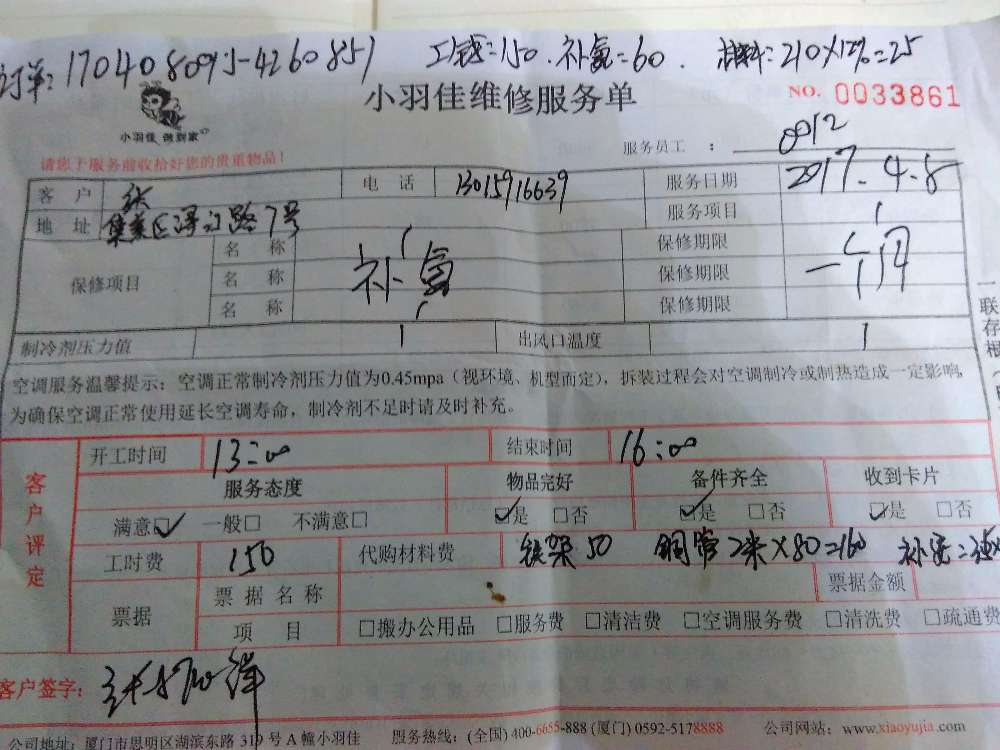 订单: 170408095-4260857 工钱=150. 补氟=60. 材料=210×12%=25
小羽佳维修服务单 NO. 0033861
小羽佳 做到家
服务员工 : 0912
请您于服务前收拾好您的贵重物品!
客户 张 电话 13015916639 服务日期 2017.4.8
地址 集美区浔江路7号 服务项目
保修项目 名称 保修期限
名称 补氟 保修期限 一个月
名称 保修期限
制冷剂压力值 出风口温度
空调服务温馨提示: 空调正常制冷剂压力值为0.45mpa (视环境、机型而定), 拆装过程会对空调制冷或制热造成一定影响,
为确保空调正常使用延长空调寿命, 制冷剂不足时请及时补充。
一联存根
客户评定
开工时间 13:00 结束时间 16:00
服务态度 物品完好 备件齐全 收到卡片
满意☑ 一般□ 不满意□ ☑是 □否 ☑是 □否 ☑是 □否
工时费 150 代购材料费 铁架50 铜管2米×80=160 补氟=
票据 票据名称 票据金额
项目 □搬办公用品 □服务费 □清洁费 □空调服务费 □清洗费 □疏通费
客户签字:
公司地址: 厦门市思明区湖滨东路319号A幢小羽佳 服务热线: (全国) 400-6655-888 (厦门) 0592-5178888 公司网站: www.xiaoyujia.com